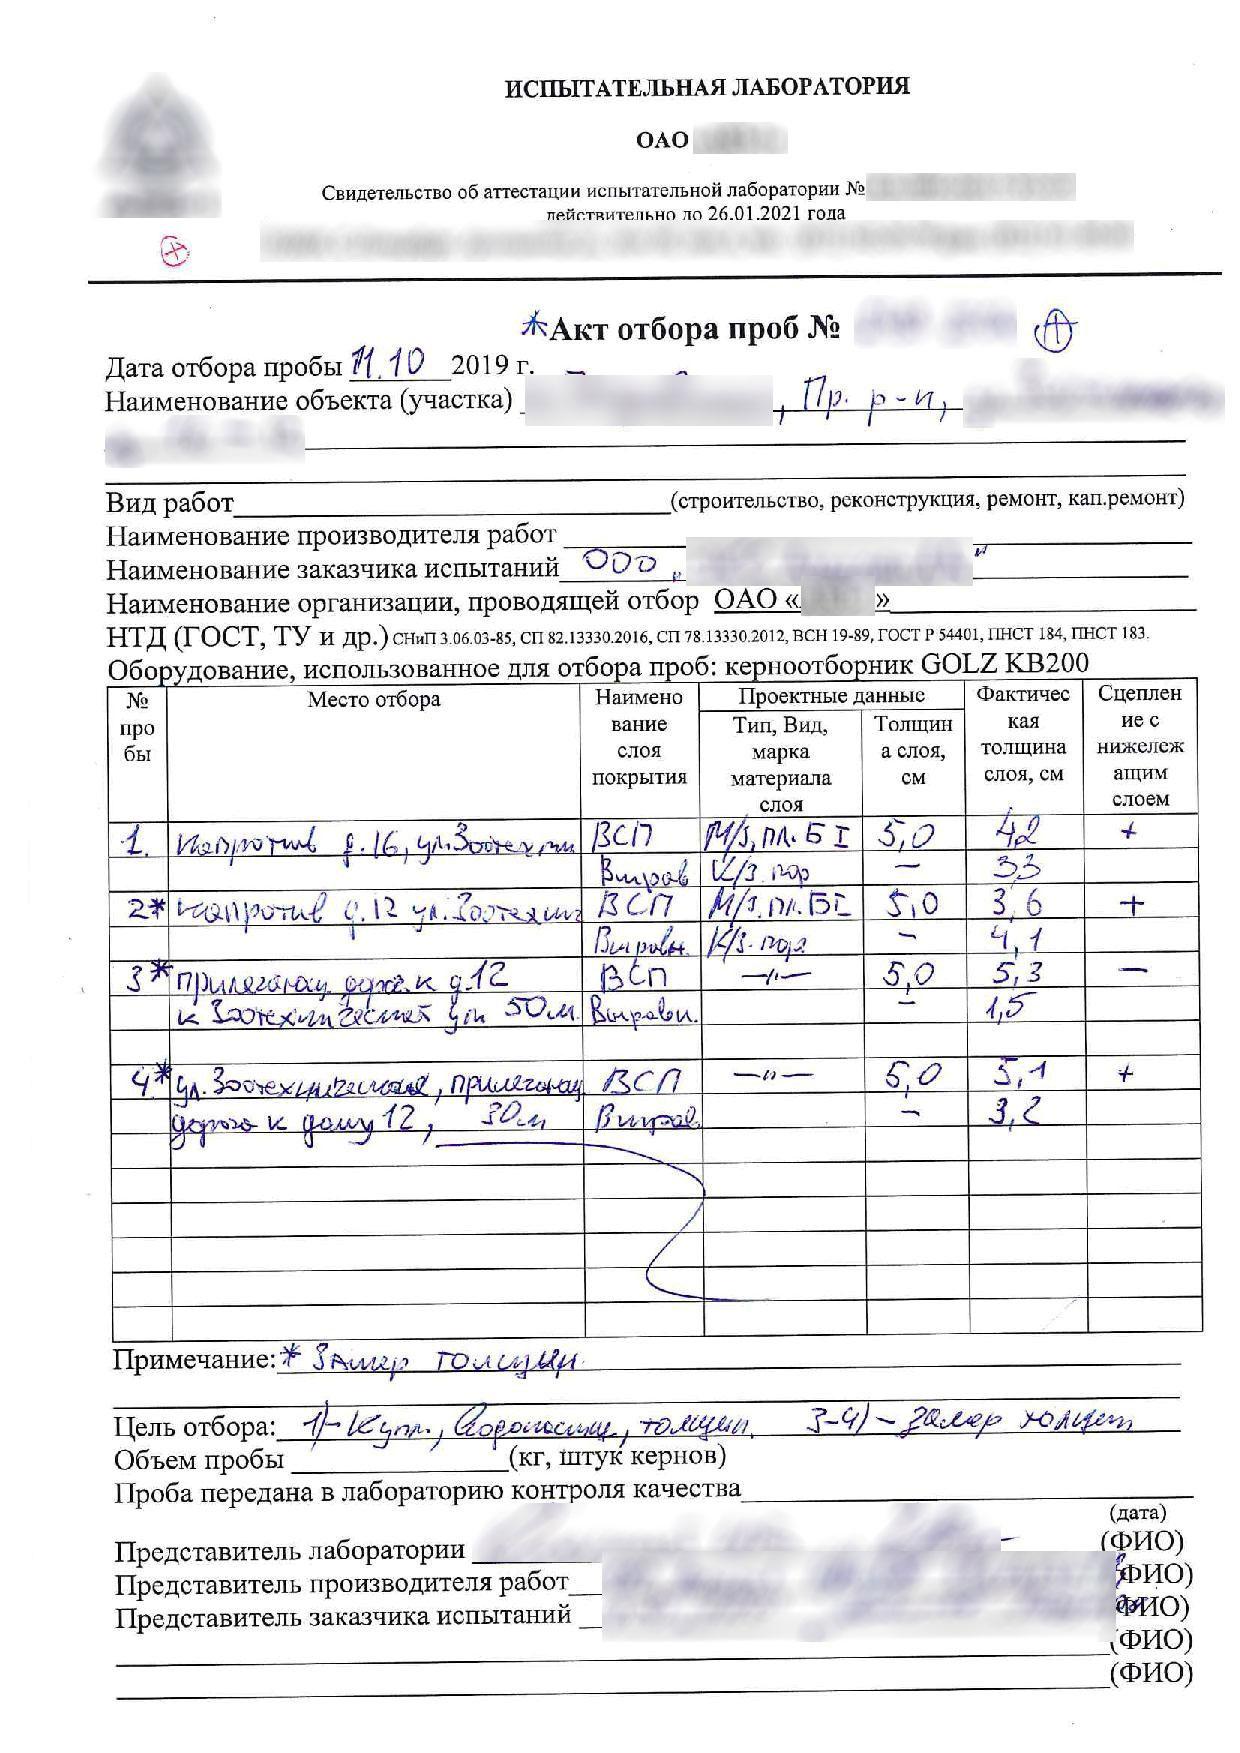 ИСПЫТАТЕЛЬНАЯ ЛАБОРАТОРИЯ
ОАО
Свидетельство об аттестации испытательной лаборатории №
действительно до 26.01.2021 года
*Акт отбора проб №
Дата отбора пробы 11.10 2019 г.
Наименование объекта (участка) , Пр. р-н,
Вид работ (строительство, реконструкция, ремонт, кап.ремонт)
Наименование производителя работ
Наименование заказчика испытаний ООО „ "
Наименование организации, проводящей отбор ОАО « »
НТД (ГОСТ, ТУ и др.) СНиП 3.06.03-85, СП 82.13330.2016, СП 78.13330.2012, ВСН 19-89, ГОСТ Р 54401, ПНСТ 184, ПНСТ 183.
Оборудование, использованное для отбора проб: керноотборник GOLZ KB200
№ пробы Место отбора Наименование слоя покрытия Проектные данные Фактическая толщина слоя, см Сцепление с нижележащим слоем
Тип, Вид, марка материала слоя Толщина слоя, см
1. Напротив д.16, ул.Зоотехни ВСП М/з, пл. Б I 5,0 4,2 +
Вырав К/з пор – 3,3
2* Напротив д.12 ул.Зоотехни ВСП М/з. пл. Б I 5,0 3,6 +
Выравн. К/з пор – 4,1
3* Прилегающ. к д.12 ВСП –"– 5,0 5,3 –
к Зоотехнической 50м. Выравн. – 1,5
4.* ул.Зоотехническая, прилегающ ВСП –"– 5,0 5,1 +
дорога к дому 12, 30м Вырав. – 3,2
Примечание: * Замер толщин
Цель отбора: 1)- Купл., Водонасыщ, толщин 3-4) - замер толщин
Объем пробы (кг, штук кернов)
Проба передана в лабораторию контроля качества
(дата)
Представитель лаборатории (ФИО)
Представитель производителя работ (ФИО)
Представитель заказчика испытаний (ФИО)
(ФИО)
(ФИО)